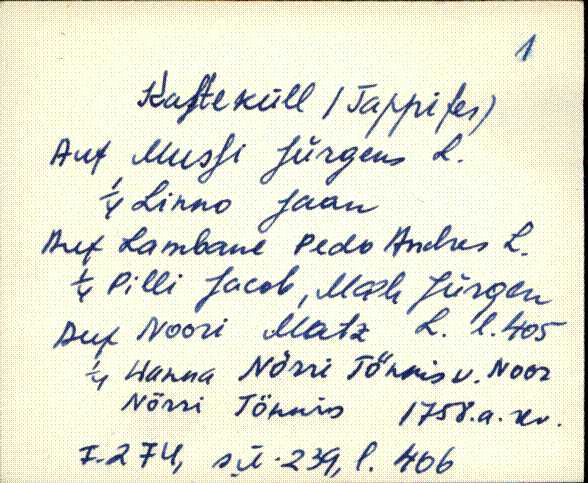 1
Kasteküll (Tappifer)
Auf Mussi Jürgens L.
1/4 Linno Jaan
Auf Lambane Pedo Andres L.
1/4 Pilli Jacob, Mäh Jürgen
Auf Noori Matz L. l. 405
1/4 Wanna Nörri Tönnis v. Noor
Nörri Tönnis 1758.a. rev.
F. 274, s.ü. 239, l. 406